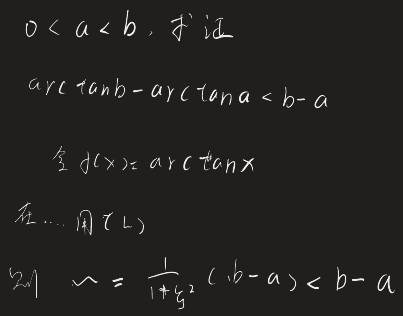 0 < a < b, 求证
arctanb - arctana < b - a
令 f(x) = arctanx
在 .... 用 (L)
则 ~ = \frac{1}{1+ξ^2} (b-a) < b - a